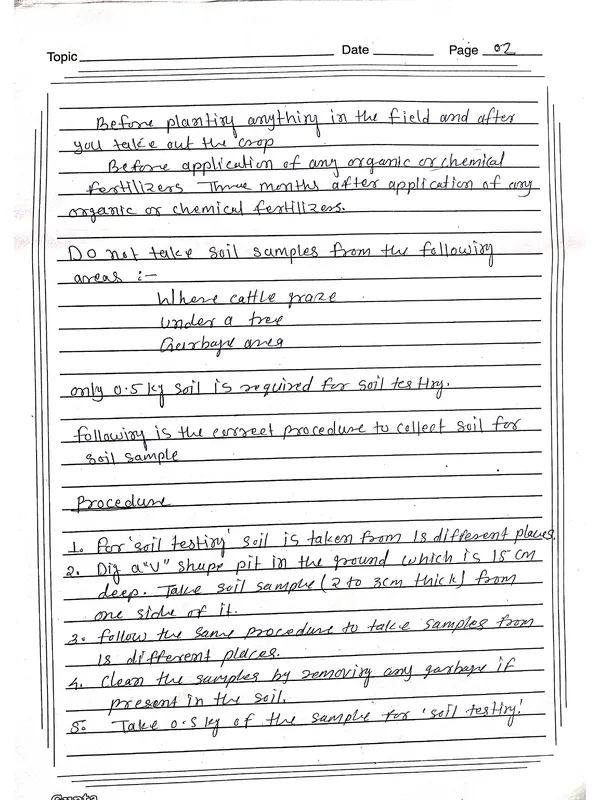 Topic Date Page 02
Before planting anything in the field and after
you take out the crop
Before application of any organic or chemical
fertilizers Three months after application of any
organic or chemical fertilizers.
Do not take soil samples from the following
areas :-
Where cattle graze
Under a tree
Garbage area
only 0.5 kg soil is required for soil testing.
following is the correct procedure to collect soil for
soil sample
Procedure
1. For 'soil testing' soil is taken from 18 different places.
2. Dig a "V" shape pit in the ground which is 15 cm
deep. Take soil sample (2 to 3cm thick) from
one side of it.
3. follow the same procedure to take samples from
18 different places.
4. Clean the samples by removing any garbage if
present in the soil.
5. Take 0.5 kg of the sample for 'soil testing'.